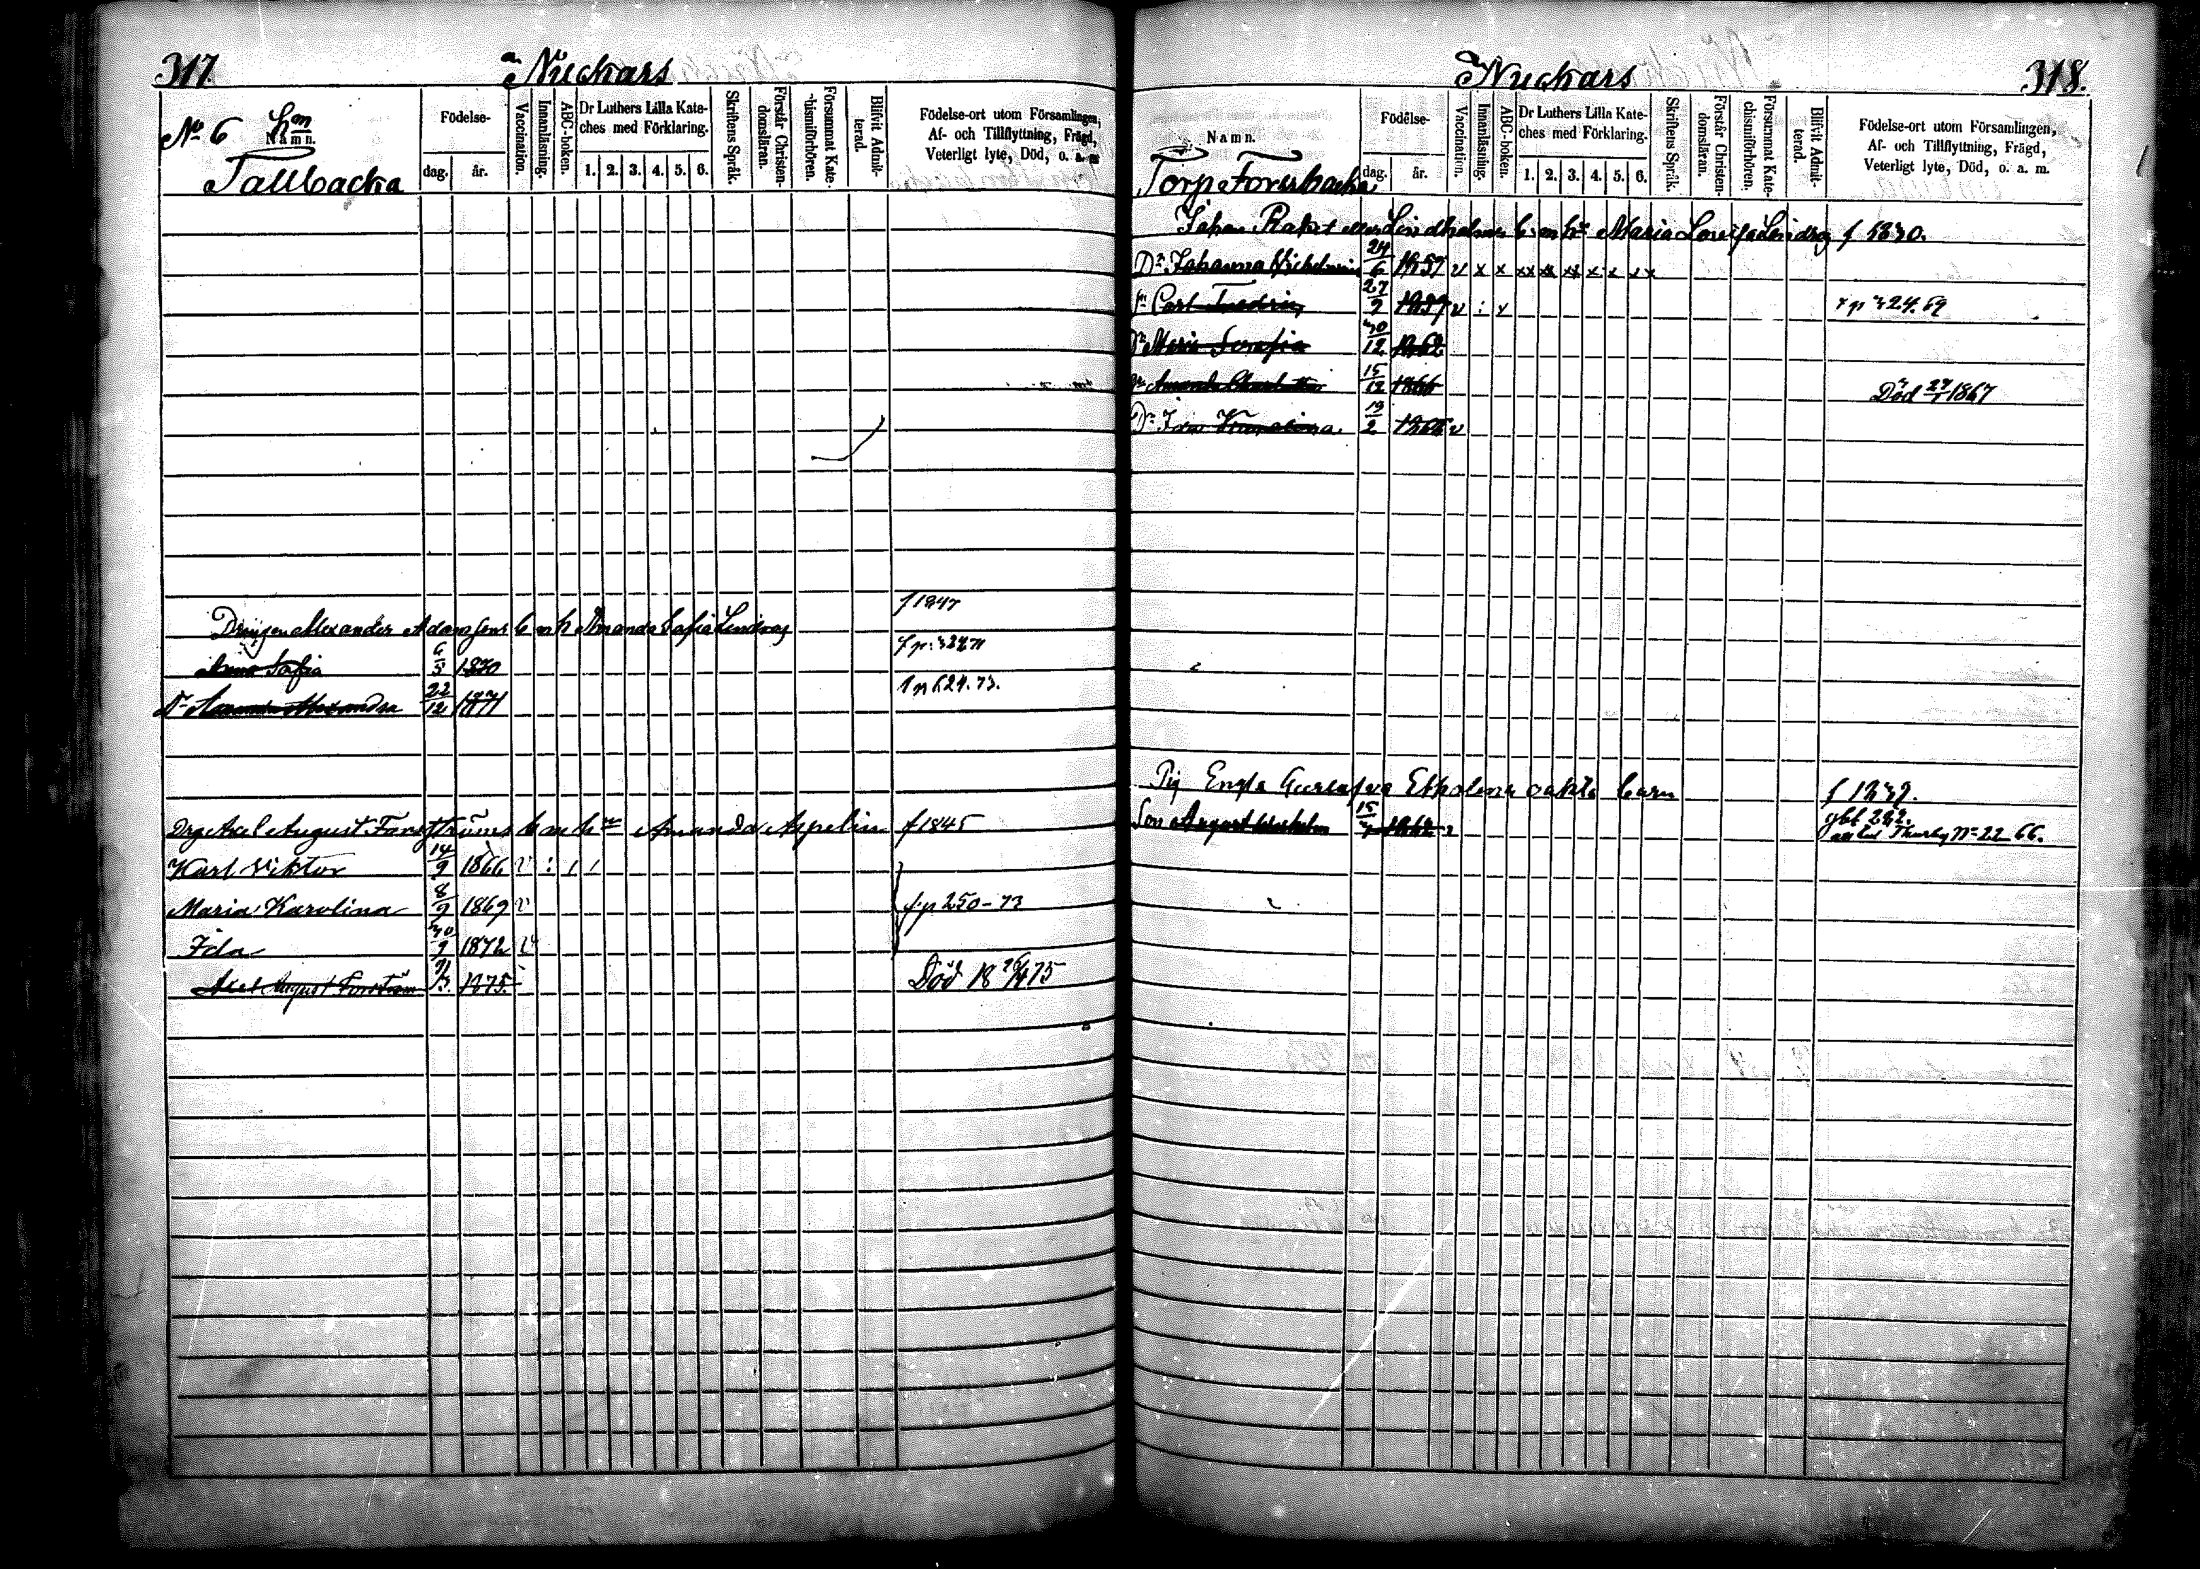 317.
Nuckars
No 6 hm
Namn.
Tallbacka
Födelse-
dag. år.
Vaccination.
Innanläsning.
ABC-boken.
Dr Luthers Lilla Kate-
ches med Förklaring.
1. 2. 3. 4. 5. 6.
Skriftens Språk.
Förstår Christen-
domsläran.
Försummat Kate-
chismiförhören.
Blifvit Admit-
terad.
Födelse-ort utom Församlingen,
Af- och Tillflyttning, Frägd,
Veterligt lyte, Död, o. a. m
f 1847
Drängen Alexander Adamsons b m h Amanda Sofia Lindroos
Anna Sofia 6/3 1870
Dr Amanda Alexandra 22/12 1871
Drg Axel August Forsströms b m hu Amanda Aspelin f 1845
Karl Viktor 14/9 1866 v : / /
Maria Karolina 8/9 1869 v
f. p 250-73
Ida 30/9 1872 v
Axel August Forsström 1875
Död 18 /4 75
Nuckars
318.
Namn.
Torp Forsbacka
Födelse-
dag. år.
Vaccination.
Innanläsning.
ABC-boken.
Dr Luthers Lilla Kate-
ches med Förklaring.
1. 2. 3. 4. 5. 6.
Skriftens Språk.
Förstår Christen-
domsläran.
Försummat Kate-
chismiförhören.
Blifvit Admit-
terad.
Födelse-ort utom Församlingen,
Af- och Tillflyttning, Frägd,
Veterligt lyte, Död, o. a. m.
Johan Raket eller Lindholms b m hu Maria Lovisa Lindroos f 1830.
Dr Johanna Vilhelmina 24/6 1857 v x x xx xx xx x x xx
Sn Carl Fredrik 27/9 1859 v : x
p 324. 69
Dr Maria Serafia 30/12 1862
Dr Amanda Charlotta 15/12 1866
Död 1867
Dr Ida Karolina 19/2 1866 v
Pig Engla Gustafva Ekholms oäkta barn
f 1839.
Son August Wilhelm 15/ 1862 v
292.
No 22 66.